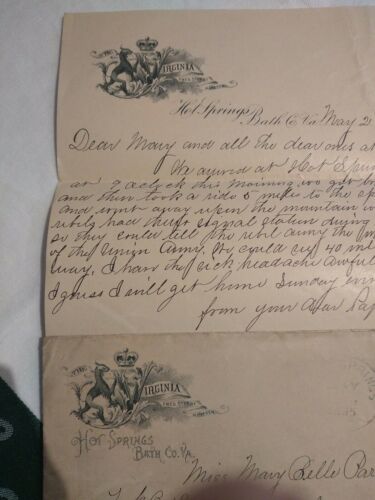 VIRGINIA
Hot Springs
Bath Co. Va. May 2
Dear Mary and all the dear ones at
We ayired at Hot Spri
at 9 aclock this morning we got br
and then took a ride 5 miles to the s
and wint away upon the mountain w
rebils had their signal station during
so they could tell the ribil army the m
of the Union Army. We could see 40 mil
way, I have the sick headache awful
I guess I will get home Sunday evn
from your dear Pap
VIRGINIA
HOT SPRINGS
BATH CO. VA.
Miss Mary Belle Par